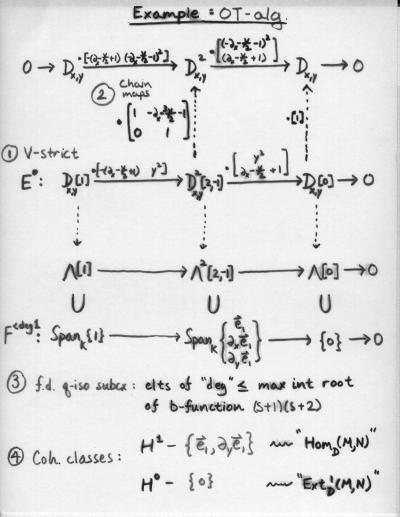 Example : OT-alg.
0 → D_{x,y} ·[-(∂_x-y/2+1) (-∂_x-y/2-1)^2] → D^2_{x,y} ·[(-∂_x-y/2-1)^2 (∂_x-y/2+1)] → D_{x,y} → 0
② Chain maps
·[1 -∂_x-3y/2-1 0 1]
·[1]
① V-strict
E^•: D_{x,y}[1] ·[-(∂_x-y/2+1) y^2] → D^2_{x,y}[2,-1] ·[y^2 ∂_x-y/2+1] → D_{x,y}[0] → 0
Λ[1] → Λ^2[2,-1] → Λ[0] → 0
∪ ∪ ∪
F^{<deg1}: Span_k{1} → Span_k{e⃗_1 ∂_x e⃗_1 ∂_y e⃗_1} → {0} → 0
③ f.d. q-iso subcx : elts of "deg" ≤ max int root
of b-function (s+1)(s+2)
④ Coh. classes :
H^1 - {e⃗_1, ∂_y e⃗_1} ⇝ "Hom_D(M,N)"
H^0 - {0} ⇝ "Ext^1_D(M,N)"